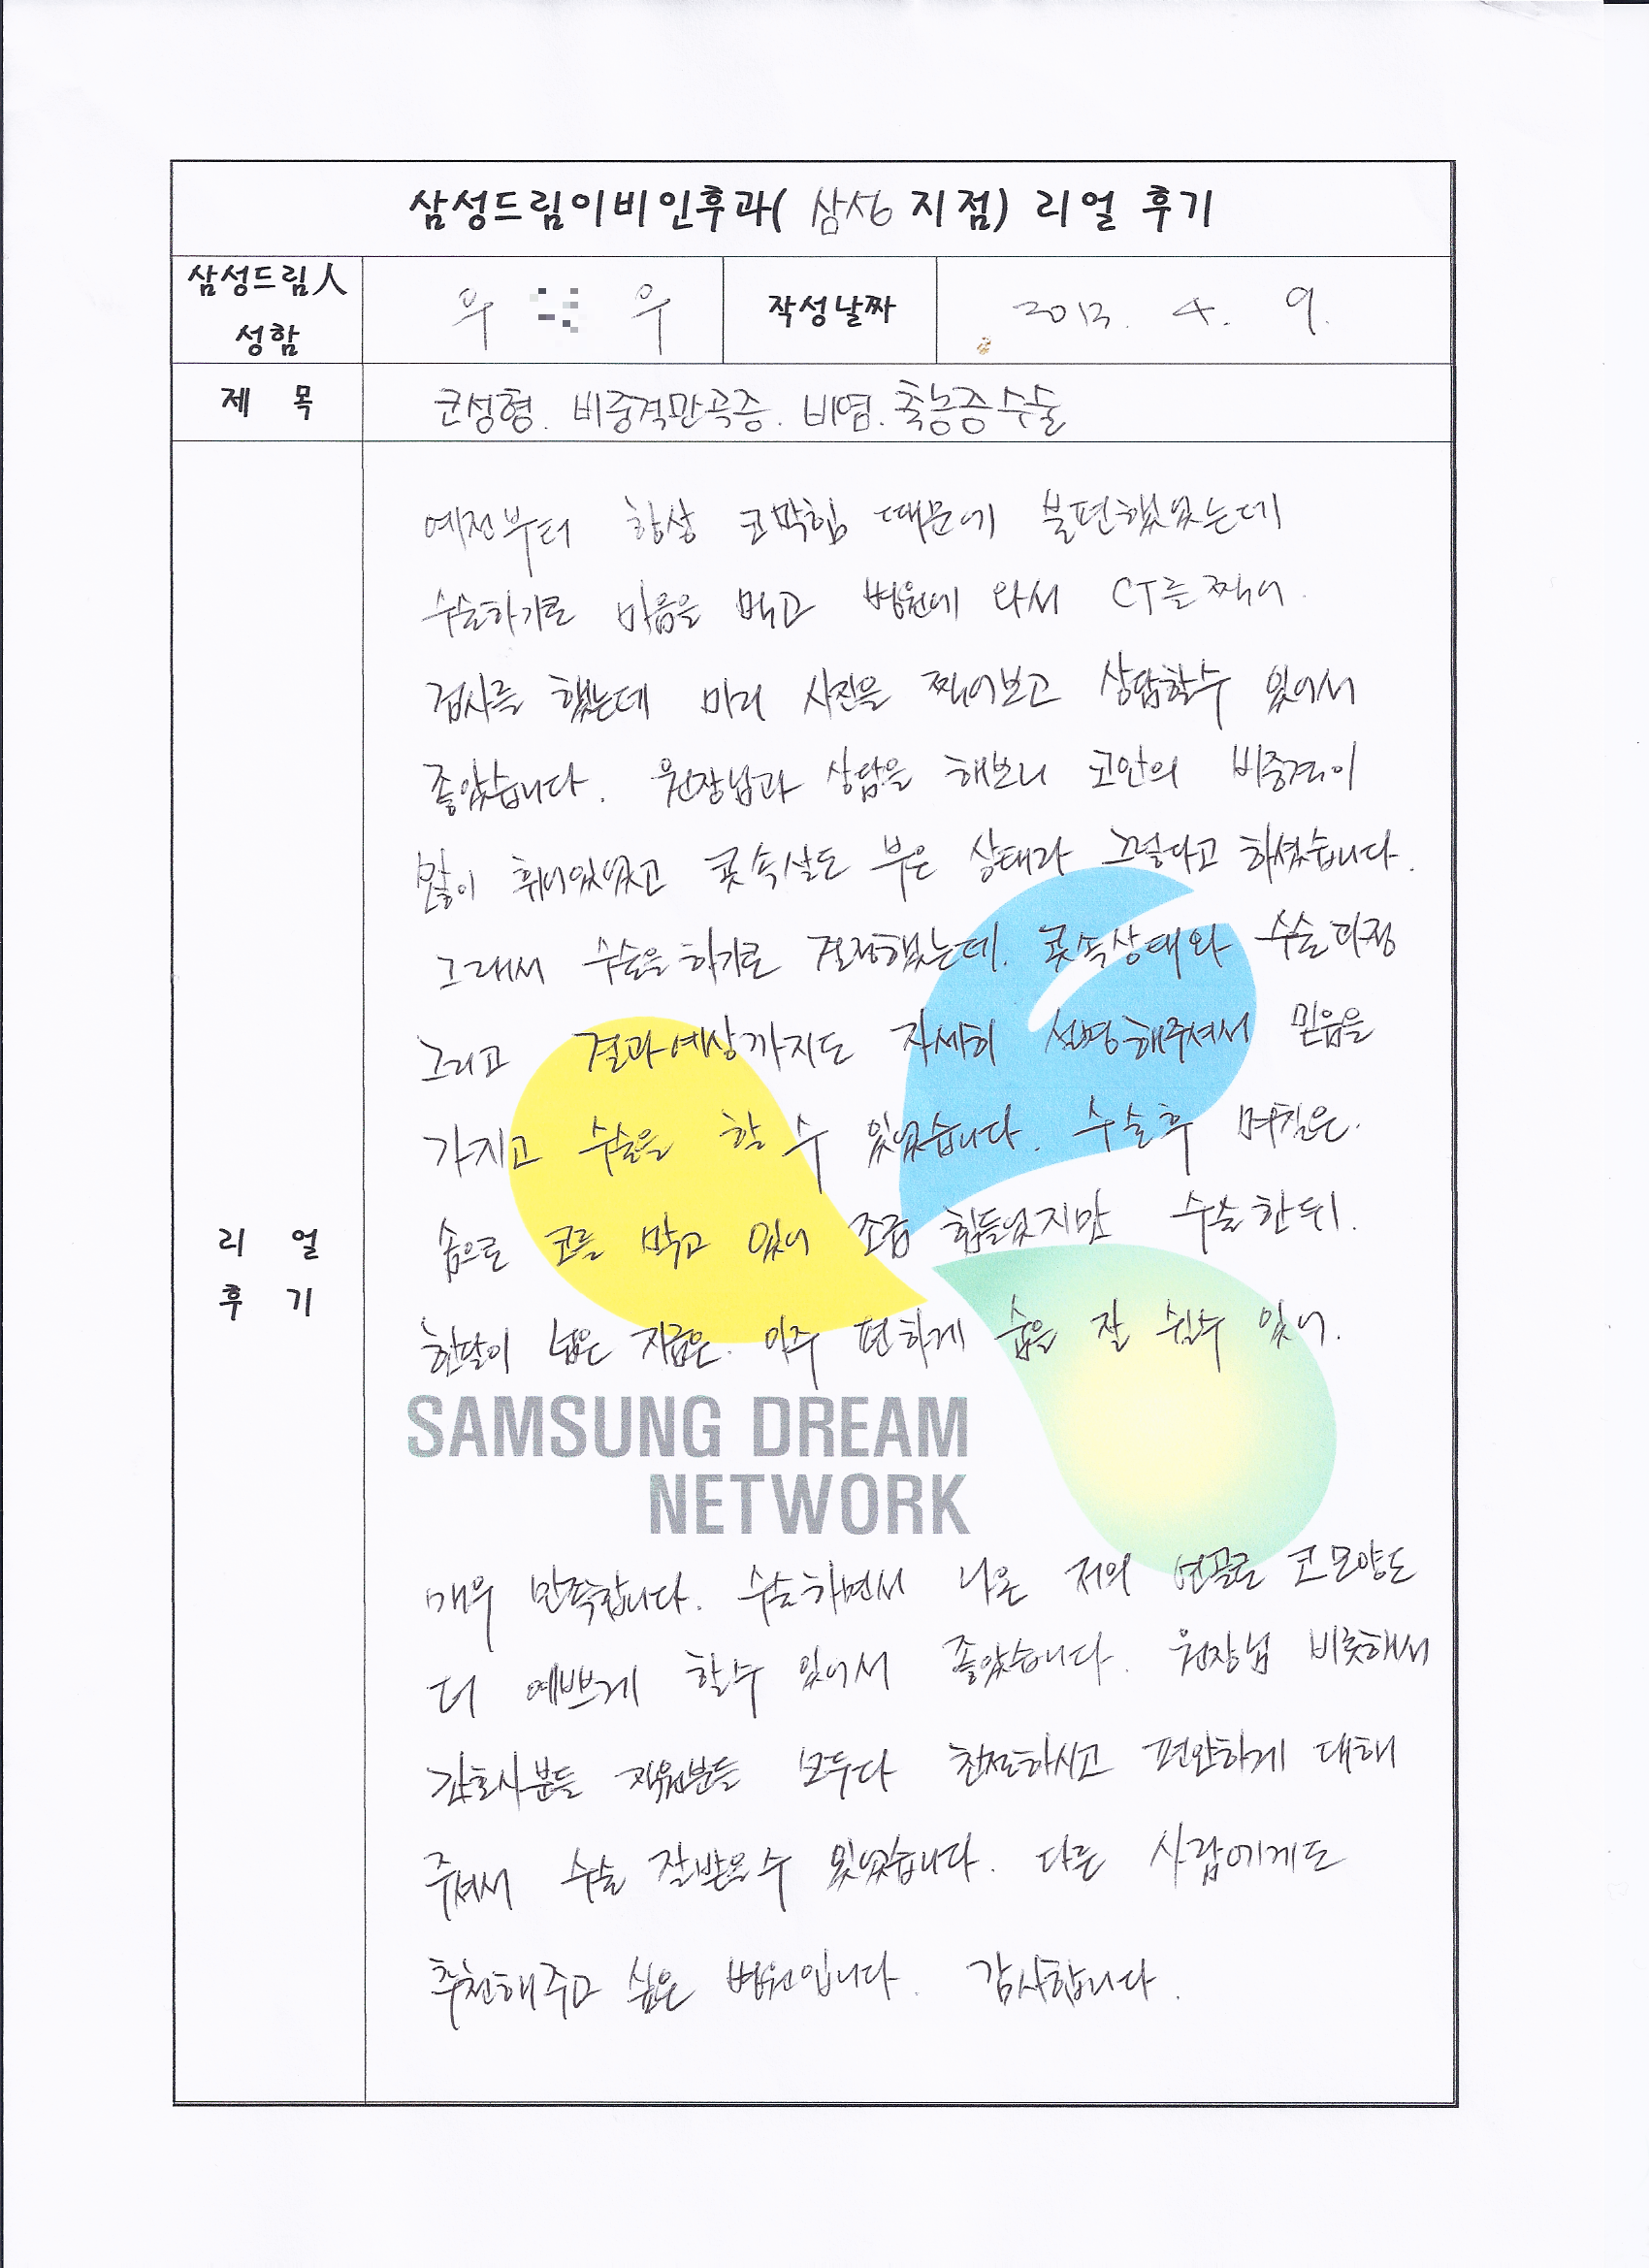 삼성드림이비인후과( 삼성 지점) 리얼 후기
삼성드림人
성함
우 우
작성날짜
2013. 4. 9.
제 목
코성형. 비중격만곡증. 비염. 축농증수술
예전부터 항상 코막힘 때문에 불편했었는데
수술하기로 마음을 먹고 병원에 와서 CT를 찍어.
검사를 했는데 미리 사진을 찍어보고 상담할수 있어서
좋았습니다. 원장님과 상담을 해보니 코안의 비중격이
많이 휘어있었고 콧속살도 부은 상태라 그렇다고 하셨습니다.
그래서 수술을 하기로 결정했는데. 콧속상태와 수술과정
그리고 결과예상까지도 자세히 설명해주셔서 믿음을
가지고 수술을 할 수 있었습니다. 수술후 며칠은.
솜으로 코를 막고 있어 조금 힘들었지만 수술한 뒤.
한달이 넘은 지금은. 아주 편하게 숨을 잘 쉴수 있어.
리 얼
후 기
SAMSUNG DREAM
NETWORK
매우 만족합니다. 수술하면서 나온 저의 연골로 코모양도
더 예쁘게 할수 있어서 좋았습니다. 원장님 비롯해서
간호사분들 직원분들 모두다 친절하시고 편안하게 대해
주셔서 수술 잘받을수 있었습니다. 다른 사람에게도
추천해주고 싶은 병원입니다. 감사합니다.